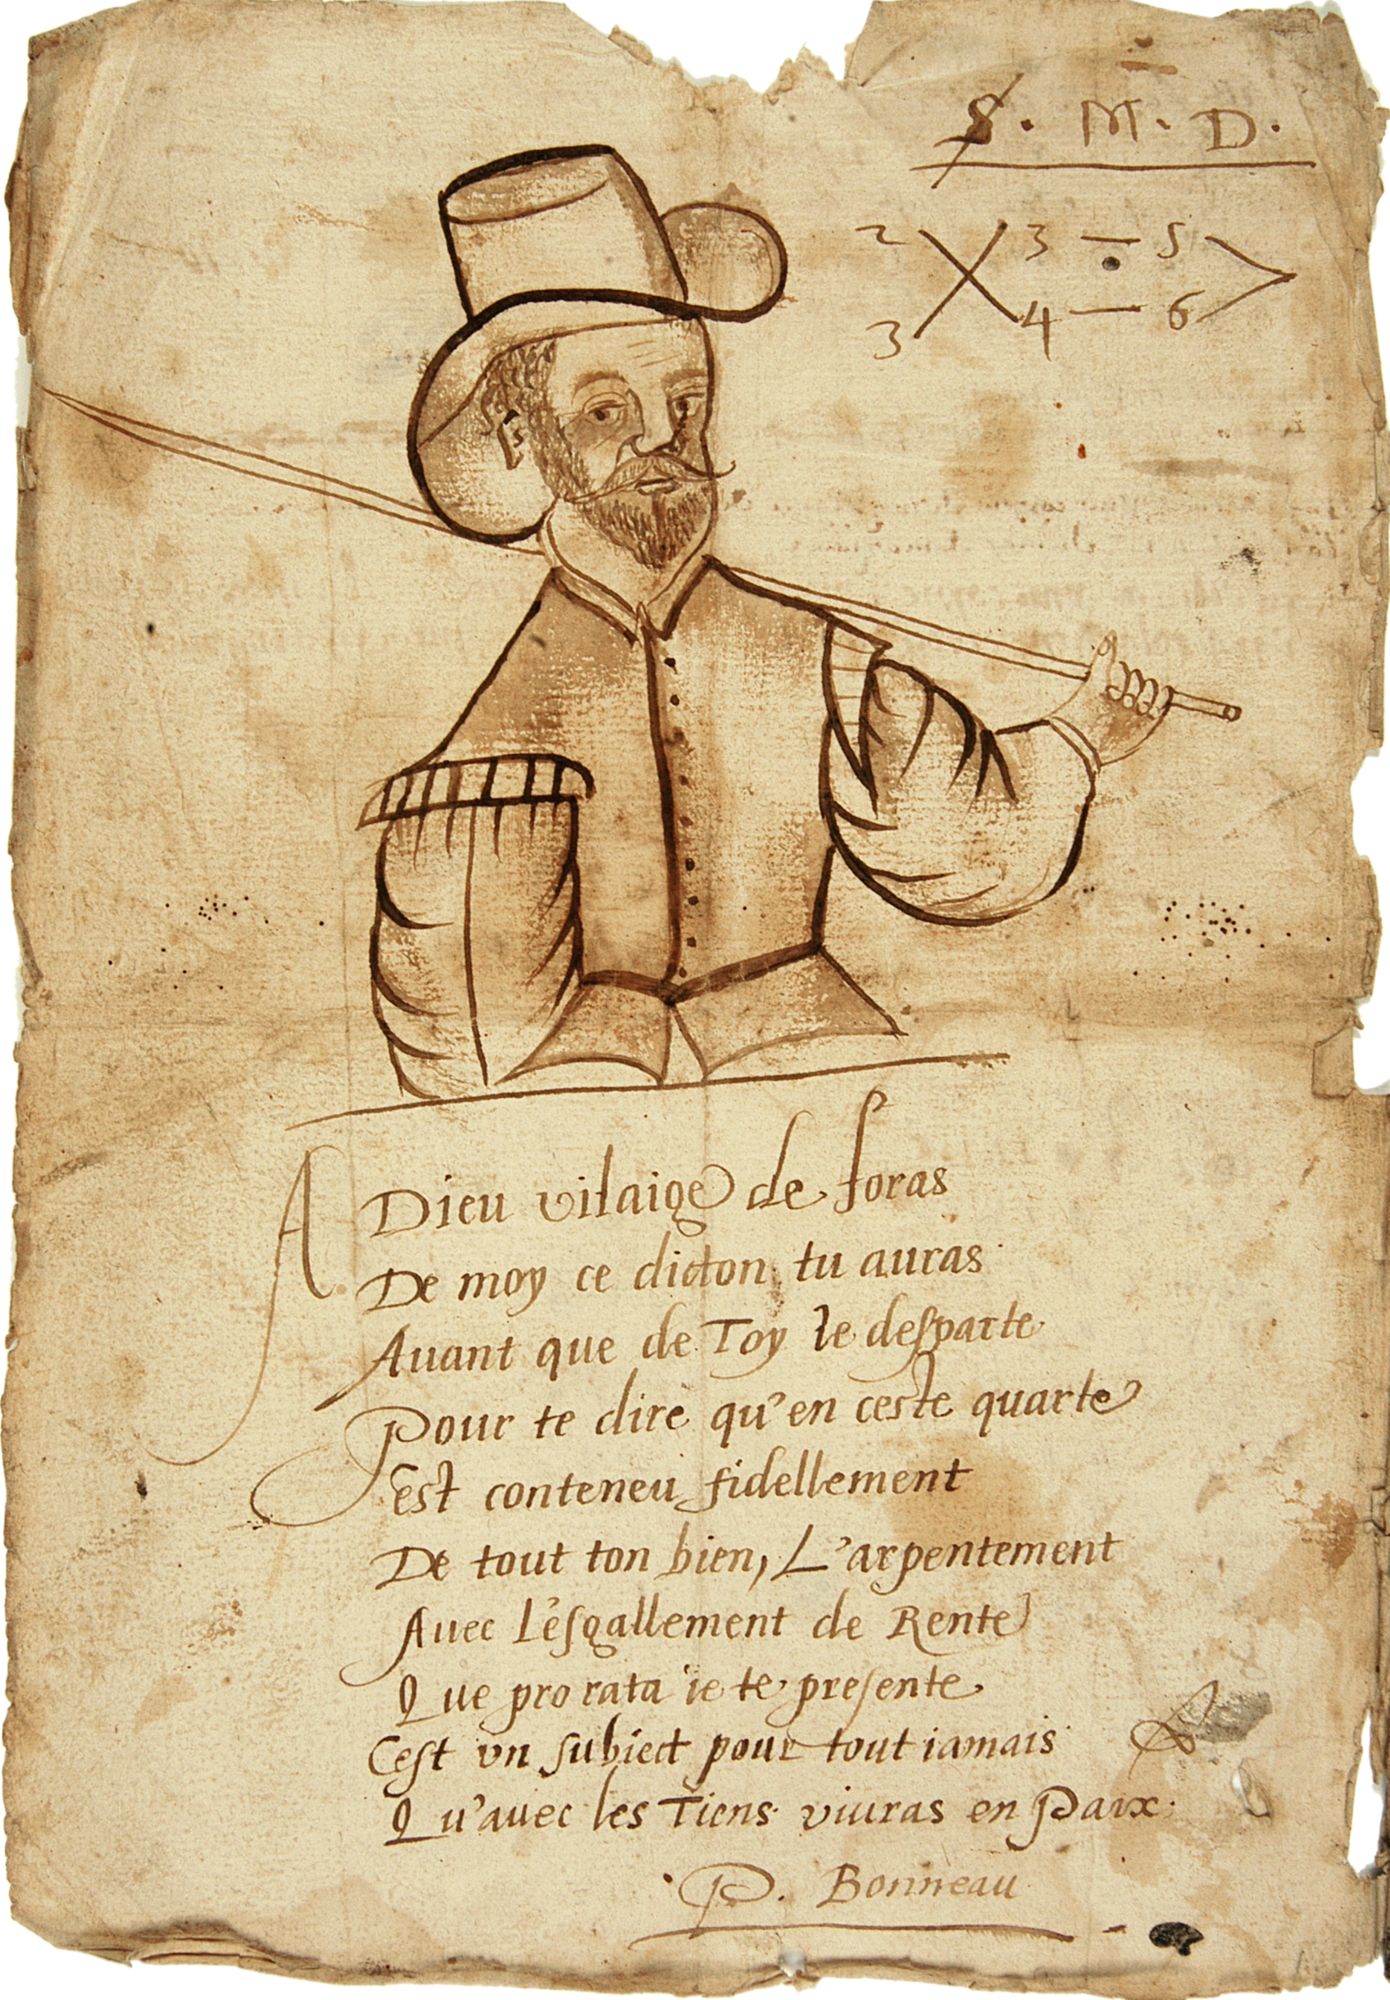 S. M. D.
2 3 — 5
3 4 — 6
A Dieu vilaige de foras
De moy ce dicton tu auras
Auant que de Toy ie desparte
Pour te dire qu'en ceste quarte
Est conteneu fidellement
De tout ton bien, L'arpentement
Auec L'esgallement de Rente
Que pro rata ie te presente
Cest vn subiect pour tout iamais
Qu'auec les Tiens viuras en Paix
P. Bonneau